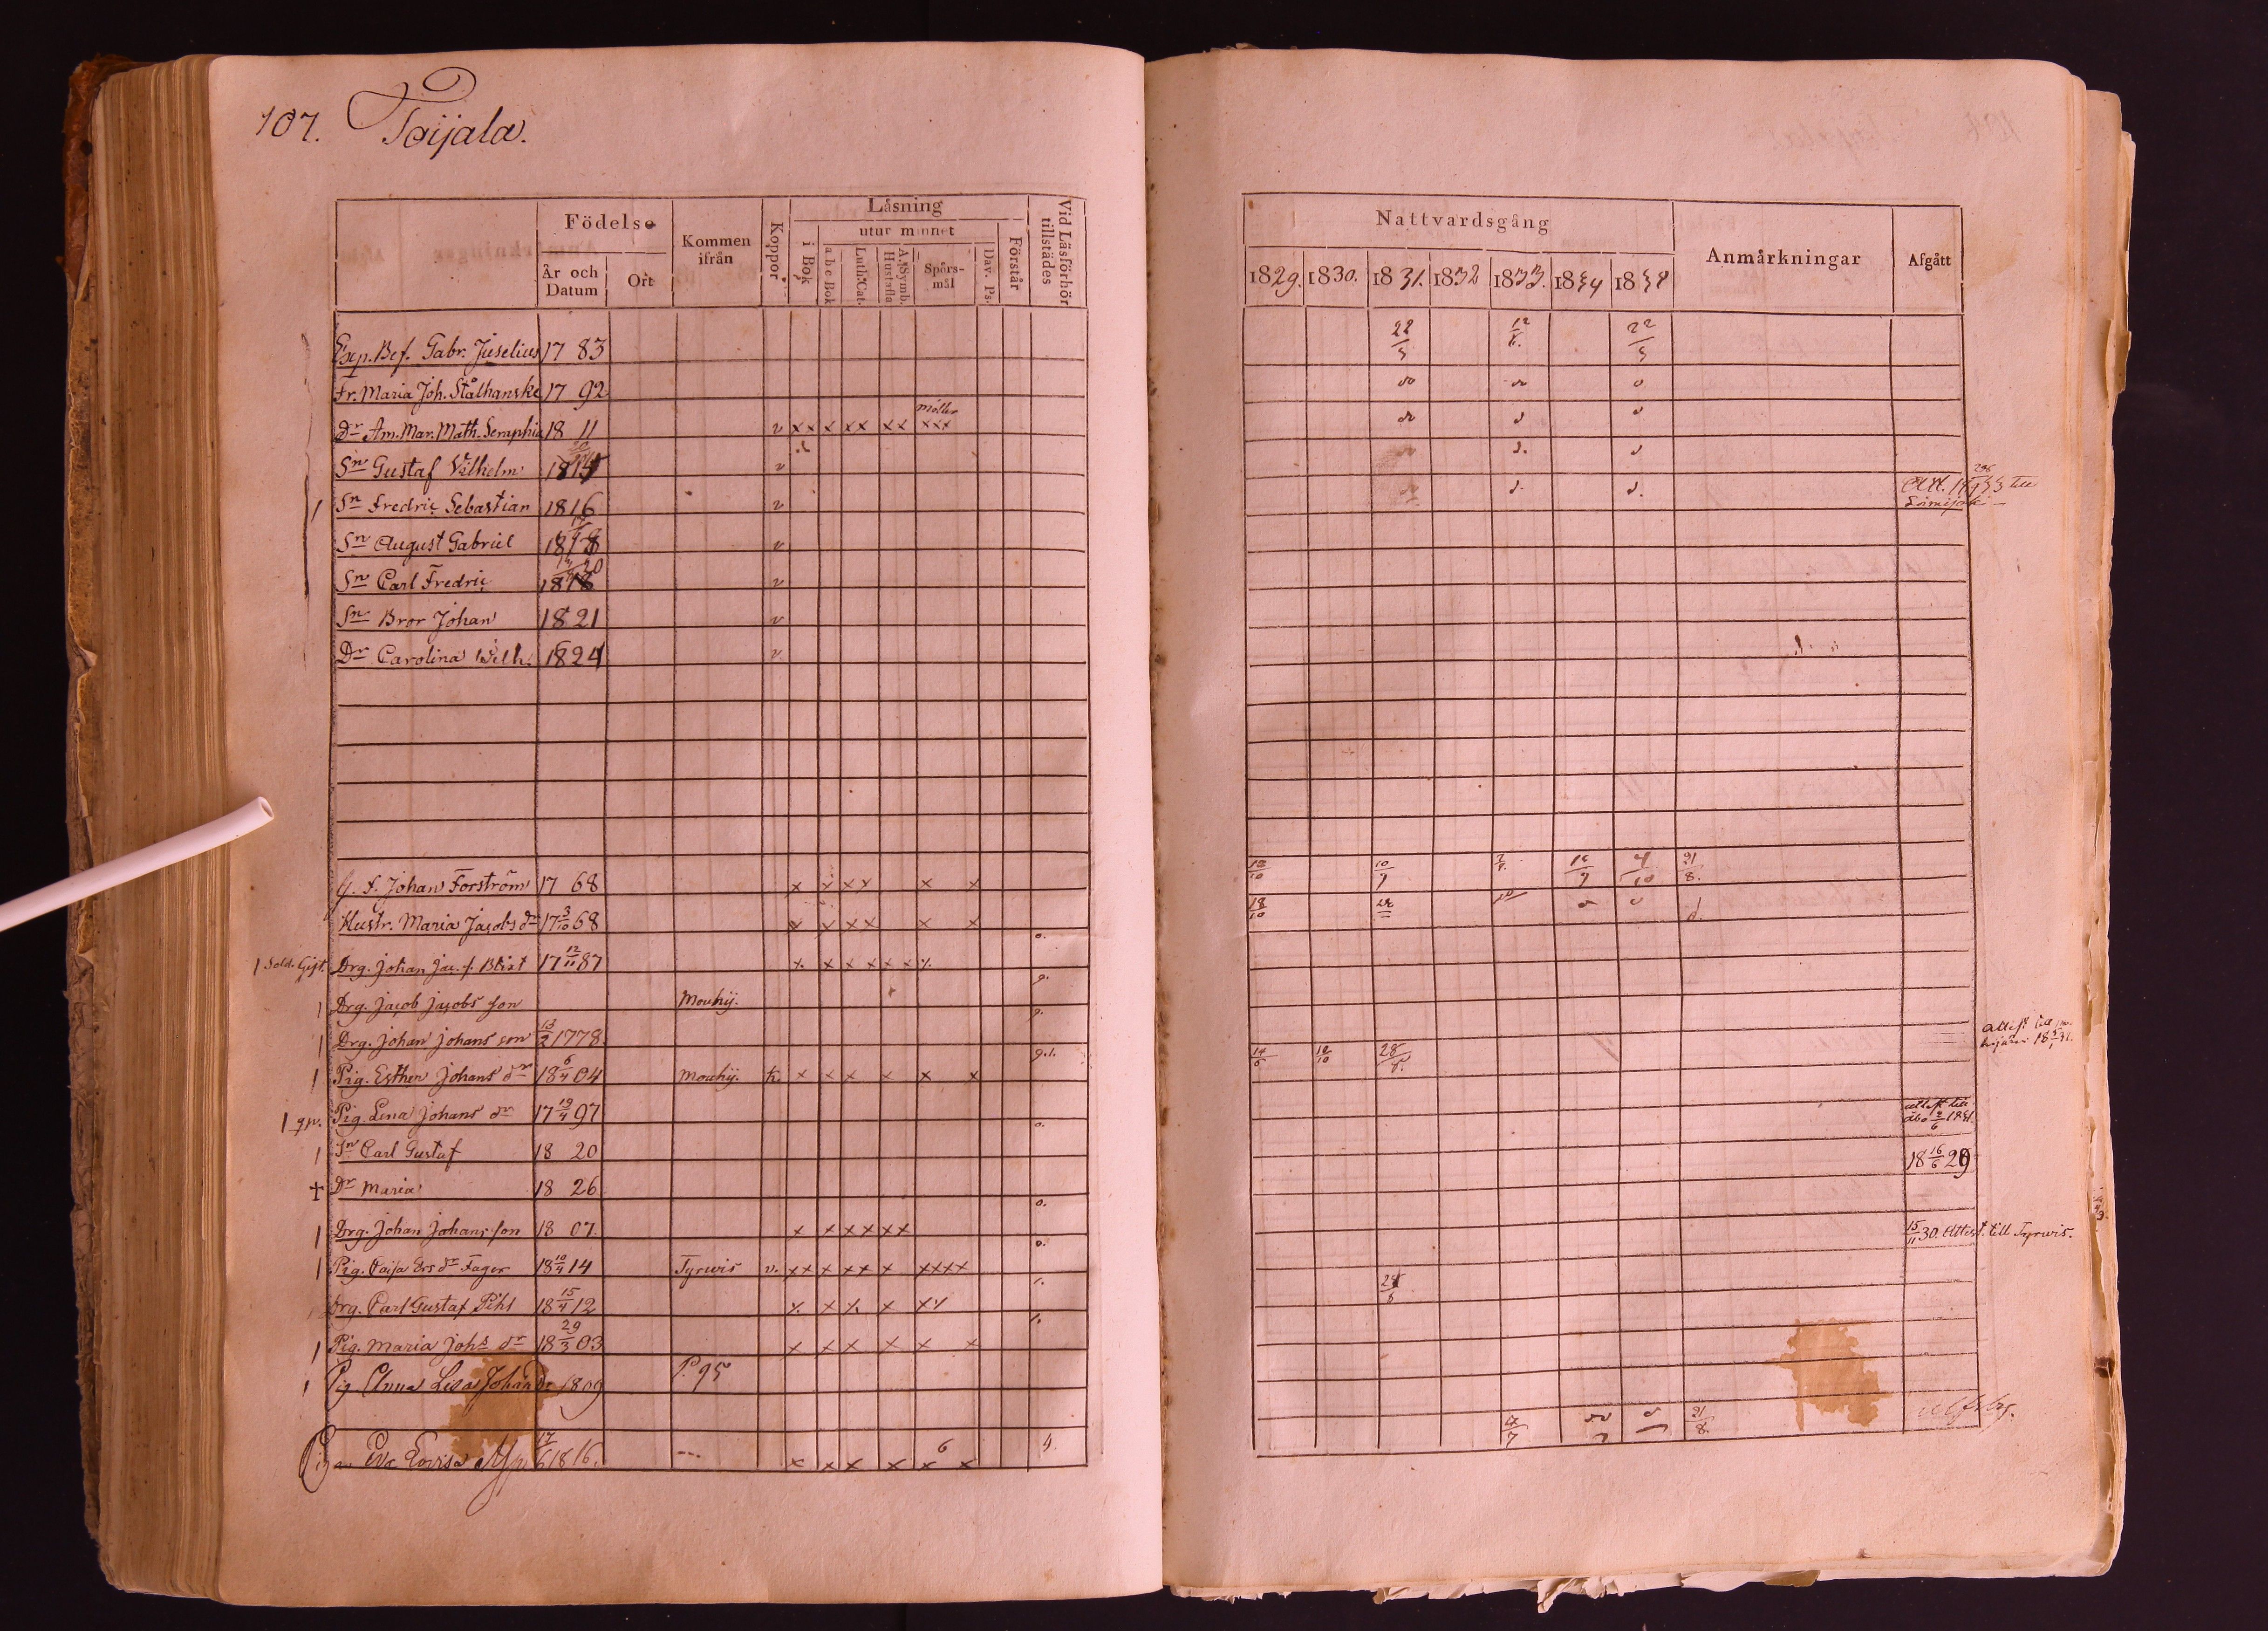 107. Toijala.
Födelse
Kommen ifrån
Koppor
Läsning
utur minnet
Vid Läsförhör tillstädes
År och Datum
Ort
i Bok
a b c Bok
Luth. Cat.
A. Symb. Hustafla
Spörs-mål
Dav. Ps.
Förstår
Exp. Bef. Gabr. Juselius 17 83
Fr. Maria Joh. Stålhanske 17 92
Dr Am. Mar. Math. Seraphia 18 11 v x x x x x x x möller x x x
Sn Gustaf Vilhelm v
Sn Fredric Sebastian 1816 v
Sn August Gabriel 1818 v
Sn Carl Fredric v
Sn Bror Johan 1821 v
Dr Carolina Wilh. 1824 v
G. f. Johan Forström 17 68 x x x x x x
Hustr. Maria Jacobs dr 17 3/10 68 x x x x x x
1 Sold. Gift. Drg. Johan Jac. f. Blixt 17 12/11 87 x x x x x x x
1 Drg. Jacob Jacobs son Mouhij.
1 Drg. Johan Johans son 13/2 1778.
1 Pig. Esther Johans dr 18 6/4 04 Mouhij. k. x x x x x x
1 qv. Pig. Lena Johans dr 17 19/4 97
1 Sn Carl Gustaf 18 20
+ Dr Maria 18 26
1 Drg. Johan Johans son 18 07. x x x x x x
1 Pig. Caisa Ers dr Fager 18 10/4 14 Tyrwis v. x x x x x x x x x x
Drg. Carl Gustaf Pihl 18 15/4 12 x x x x x x
1 Pig. Maria Johs dr 18 29/3 03 x x x x x x
1 Pig. Anna Lisa Johan Dr 1809 P. 95
Pig. Eva Lovisa 17/6 1816. --- x x x x 6 x x 4.
Nattvardsgång
Anmärkningar
Afgått
1829. 1830. 1831. 1832 1833. 1834 1838
22/5 12/6. 22/5
Att.
12/10 10/7 7/8. 12/9 4/10 21/8.
18/10
attest till
14/6 12/10 28/8.
attest till
Åbo 2/6 1831.
18 16/6 29
15/11 30. Attest. till Tyrwis.
28/8
4/7 21/8.